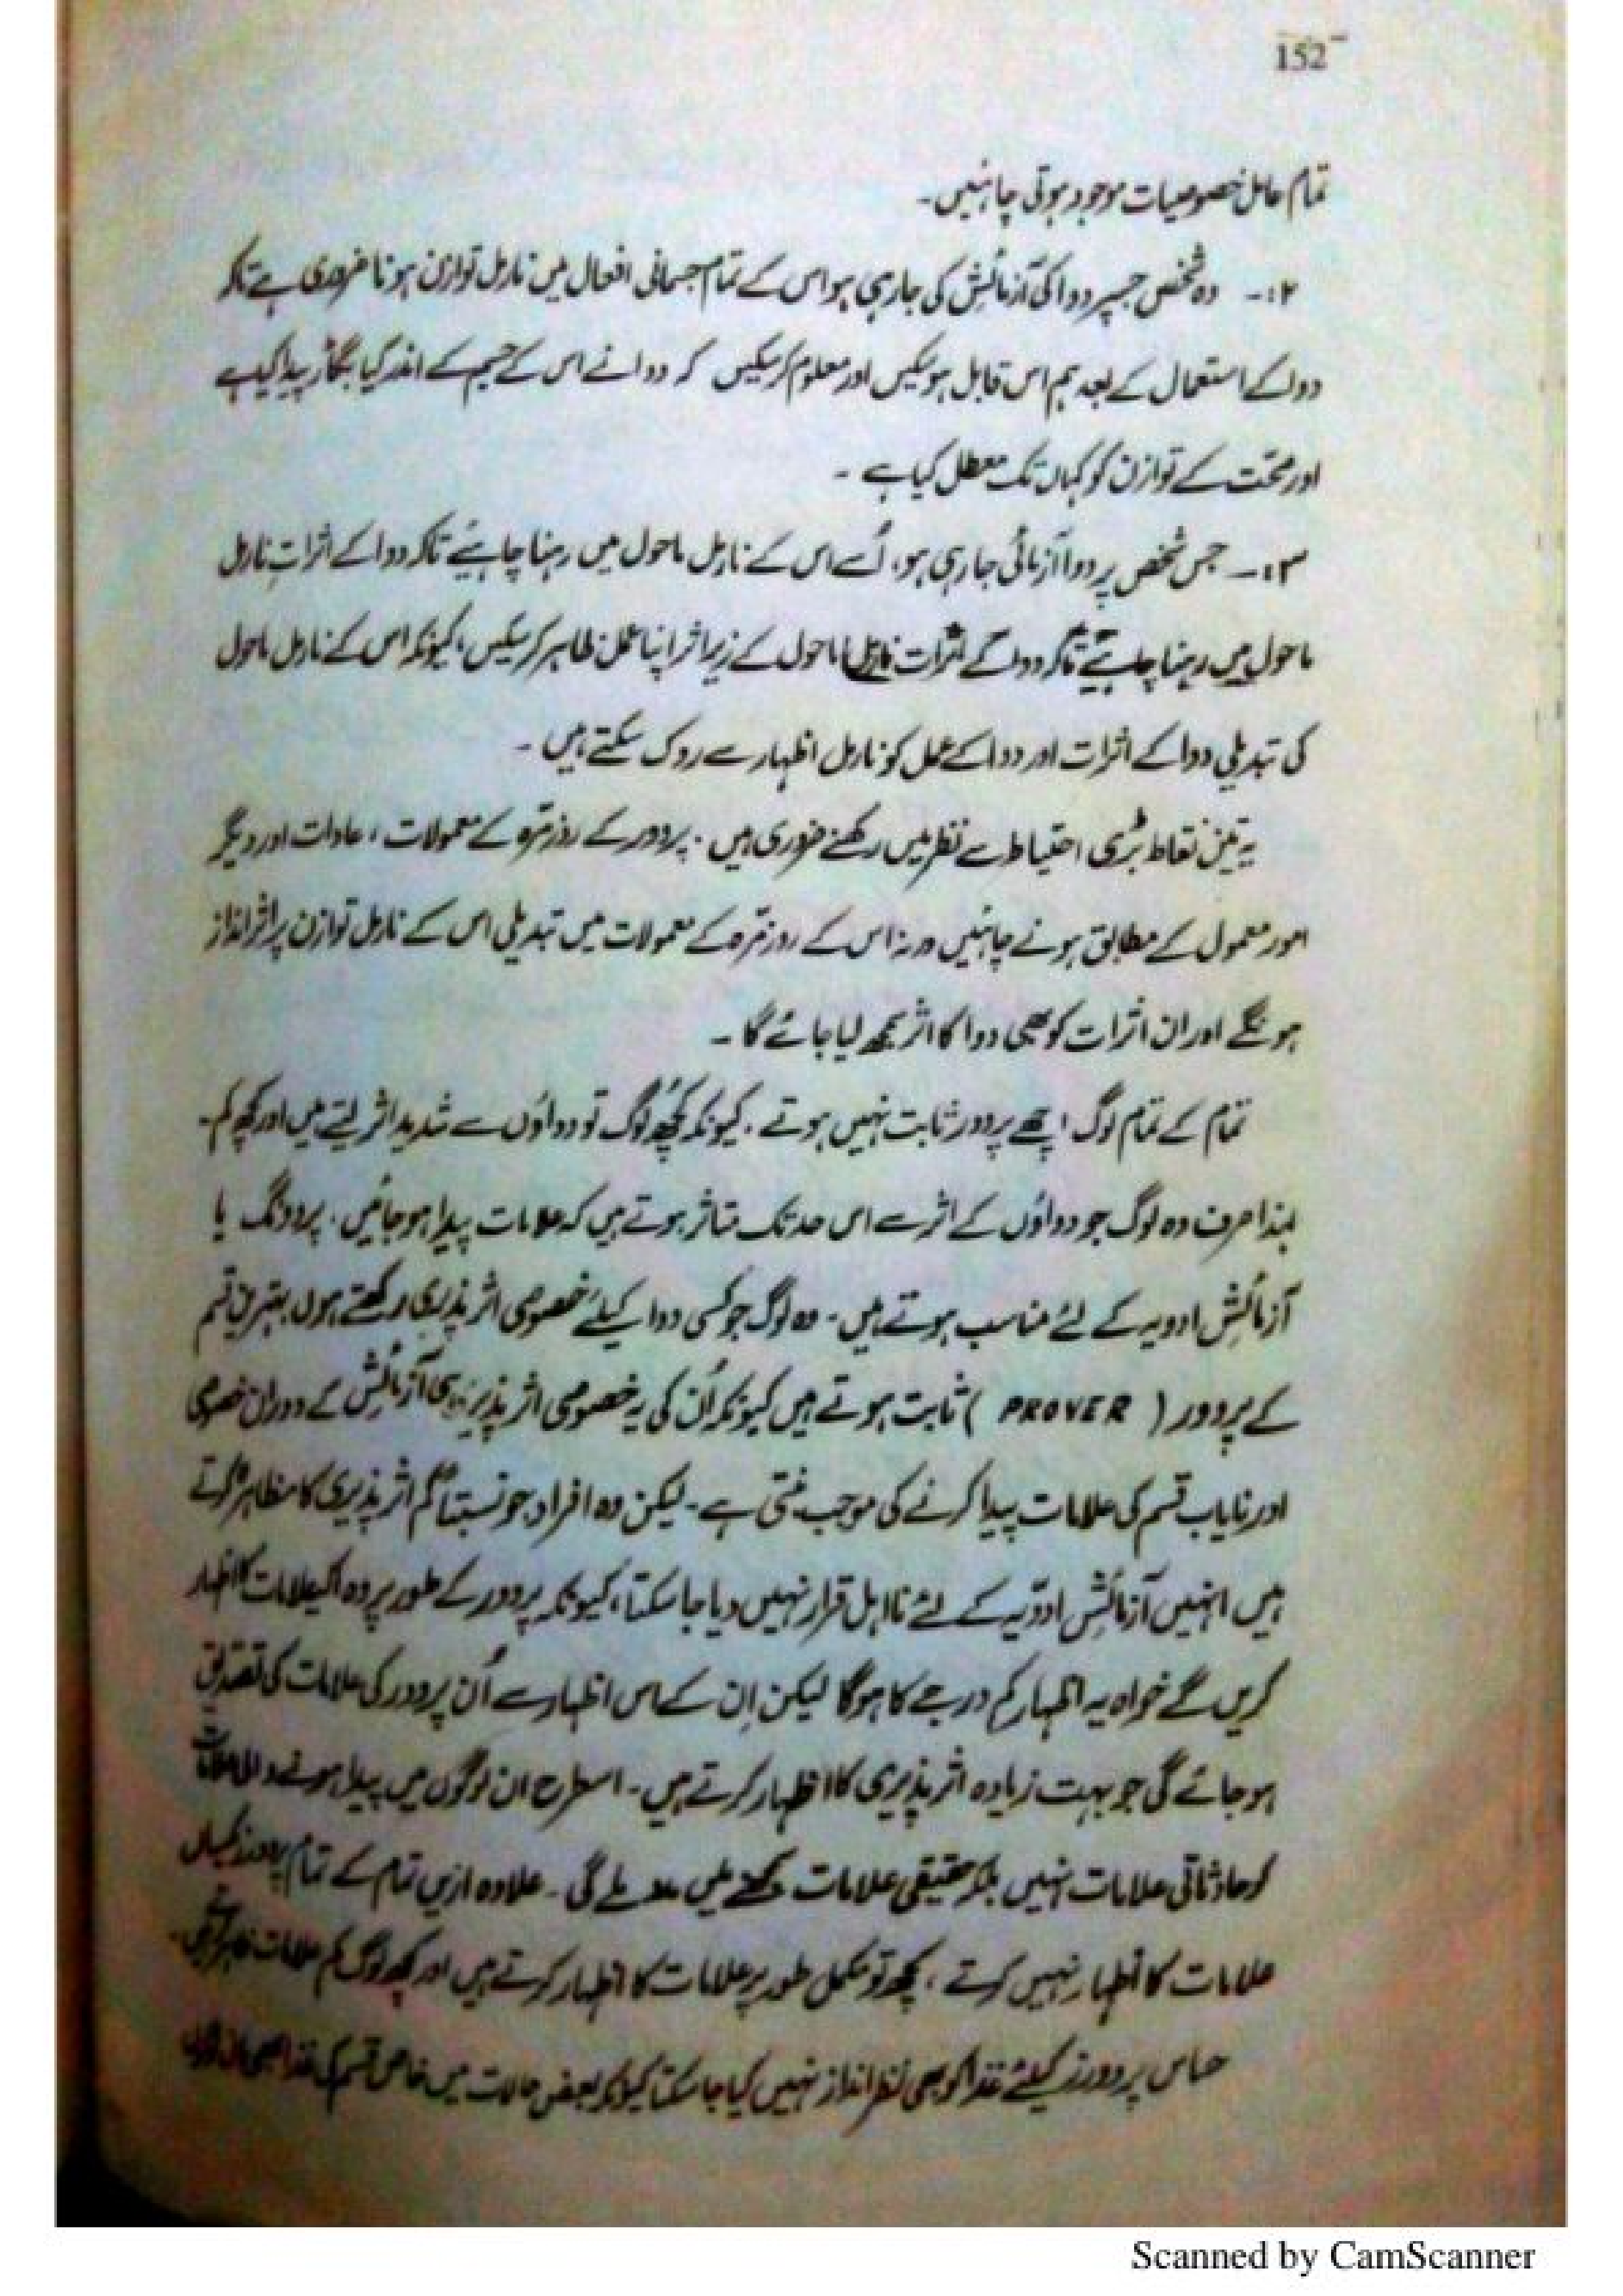 152
تمام عامل خصوصیات موجود ہوتی چاہئیں۔
۲:۔ وہ شخص جسپر دوا کی آزمائش کی جا رہی ہو اس کے تمام جسمانی افعال میں نارمل توازن ہونا ضروری ہے تاکہ
دوا کے استعمال کے بعد ہم اس قابل ہو سکیں اور معلوم کر سکیں کہ دوا نے اس کے جسم کے اندر کیا بگاڑ پیدا کیا ہے
اور صحت کے توازن کو کہاں تک معطل کیا ہے ۔
۳:۔ جس شخص پر دوا آزمائی جا رہی ہو، اُسے اس کے نارمل ماحول میں رہنا چاہئیے تاکہ دوا کے اثرات نارمل
ماحول میں رہنا چاہئیے تاکہ دوا کے اثرات نارمل ماحول کے زیر اثر اپنا عمل ظاہر کر سکیں، کیونکہ اس کے نارمل ماحول
کی تبدیلی دوا کے اثرات اور دوا کے عمل کو نارمل اظہار سے روک سکتے ہیں ۔
یہ تین نقاط بڑی احتیاط سے نظر میں رکھنے ضروری ہیں ۔ پروور کے روزمرّہ کے معمولات ، عادات اور دیگر
امور معمول کے مطابق ہونے چاہئیں ورنہ اس کے روزمرّہ کے معمولات میں تبدیلی اس کے نارمل توازن پر اثر انداز
ہونگے اور ان اثرات کو بھی دوا کا اثر سمجھ لیا جائے گا ۔
تمام کے تمام لوگ اچھے پروور ثابت نہیں ہوتے ، کیونکہ کچھ لوگ تو دواؤں سے شدید اثر لیتے ہیں اور کچھ کم۔
لہٰذا صرف وہ لوگ جو دواؤں کے اثر سے اس حد تک متاثر ہوتے ہیں کہ علامات پیدا ہو جائیں ۔ پروونگ یا
آزمائش ادویہ کے لئے مناسب ہوتے ہیں ۔ وہ لوگ جو کسی دوا کیلئے خصوصی اثر پذیری رکھتے ہوں بہترین قسم
کے پروور ( PROVER ) ثابت ہوتے ہیں کیونکہ اُن کی یہ خصوصی اثر پذیری آزمائش کے دوران خصوصی
اور نایاب قسم کی علامات پیدا کرنے کی موجب بنتی ہے ۔ لیکن وہ افراد جو نسبتاً کم اثر پذیری کا مظاہرہ کرتے
ہیں انہیں آزمائش ادویہ کے لئے نا اہل قرار نہیں دیا جا سکتا، کیونکہ پروور کے طور پر وہ علامات کا اظہار
کریں گے خواہ یہ اظہار کم درجے کا ہوگا لیکن اِن کے اس اظہار سے اُن پروور کی علامات کی تصدیق
ہو جائے گی جو بہت زیادہ اثر پذیری کا اظہار کرتے ہیں ۔ اسطرح ان لوگوں میں پیدا ہونے والی علامات
کو حادثاتی علامات نہیں بلکہ حقیقی علامات میں ملے گی ۔ علاوہ ازیں تمام کے تمام پروورز یکساں
علامات کا اظہار نہیں کرتے ، کچھ تو مکمل طور پر علامات کا اظہار کرتے ہیں اور کچھ لوگ کم علامات ظاہر کرتے ہیں ۔
حساس پروورز کیلئے غذا کو بھی نظر انداز نہیں کیا جا سکتا کیونکہ بعض حالات میں خاص قسم کی غذا بھی
Scanned by CamScanner